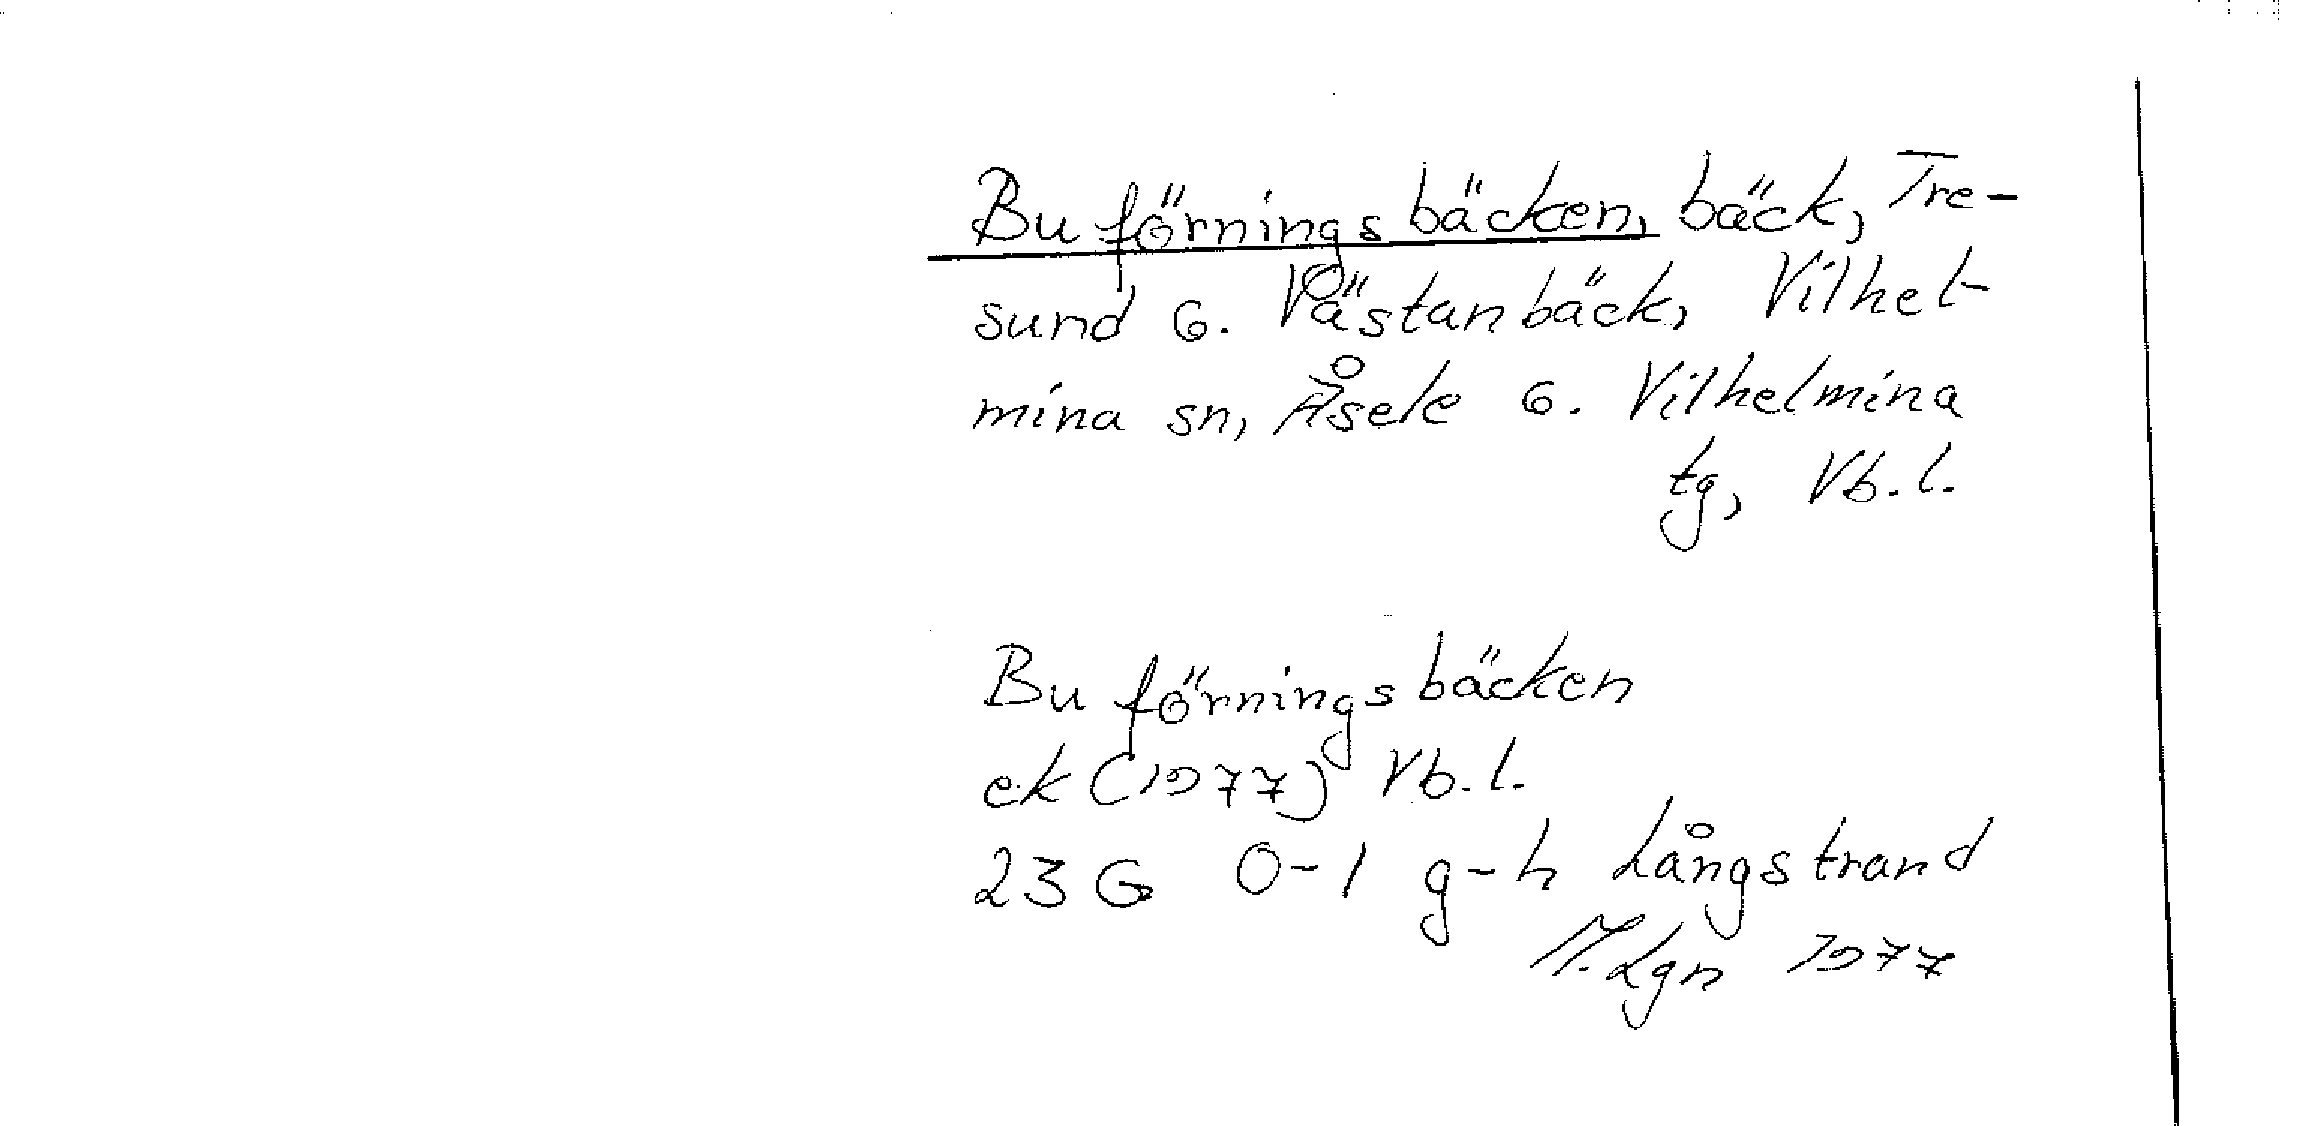 Buförningsbäcken, bäck, Tre-
sund o. Västanbäck, Vilhel-
mina sn, Åsele o. Vilhelmina
tg, Vb.l.
Buförningsbäcken
ek (1977) Vb.l.
23 G 0-1 g-h Långstrand
M.Lgn 1977